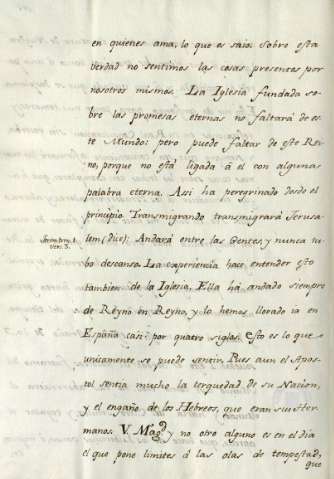 en quienes ama, lo que es saio. Sobre esta
verdad no sentimos las cosas presentes por
nosotros mismos. La Iglesia fundada so-
bre las promesas eternas no faltará de es-
te Mundo: pero puede faltar de este Rei-
no, porque no está ligada á el con alguna
palabra eterna. Asi ha peregrinado desde el
principio. Transmigrando transmigrará Jerusa-
lem (dice): Andará entre las Gentes, y nunca tu-
ver. 3.
bo descanso. La experiencia hace entender esto
tambien de la Iglesia. Ella há andado siempre
de Reyno en Reyno, y lo hemos llorado ia en
España casi por quatro siglos. Esto es lo que
unicamente se puede sentir. Pues aun el Apos-
tol sentia mucho la terquedad de su Nacion,
y el engaño de los Hebreos, que eran sus er-
manos. V. Magd. y no otro alguno es en el dia
el que pone limites á las olas de tempestad,
que